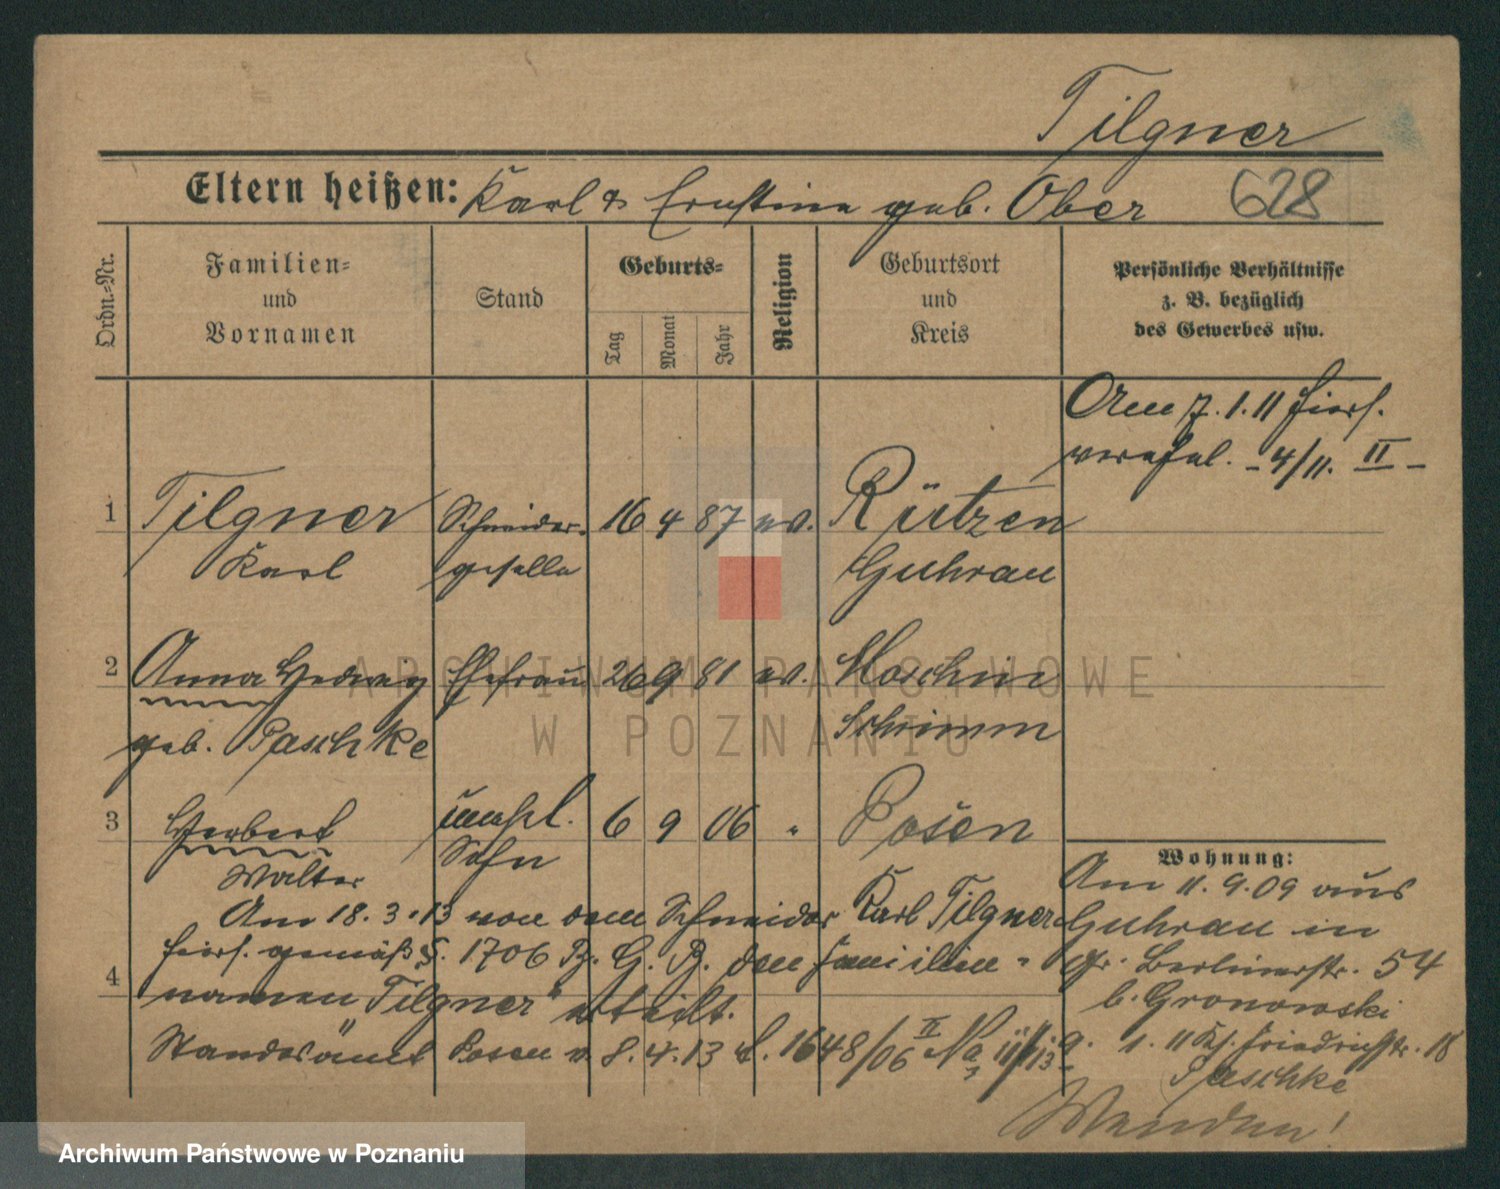 Tilgner
Eltern heißen: Karl & Ernstine geb. Ober 628
Ordn.-Nr.
Familien-
und
Vornamen
Stand
Geburts-
Tag
Monat
Jahr
Religion
Geburtsort
und
Kreis
Persönliche Verhältnisse
z. B. bezüglich
des Gewerbes usw.
Am 7. 1. 11 hiers.
verehel. - 4/11. II -
1 Tilgner Schneider- 16 4 87 ev. Rützen
Karl geselle Guhrau
2 Anna Hedwig Ehefrau 26 9 81 ev. Moschin
geb. Paschke Schrimm
3 Herbert unehl. 6 9 06 " Posen
Walter Sohn
Wohnung:
Am 11. 9. 09 aus
Guhrau in
Gr. Berlinerstr. 54
b. Gronowski
1. 11 Friedrichstr. 18
Paschke
Wenden!
Am 18. 3. 13 von dem Schneider Karl Tilgner
hiers. gemäß §. 1706 B. G. B. den Familien-
4 namen „Tilgner" erteilt.
Standesamt Posen v. 8. 4. 13 1648/06 II
ARCHIWUM PAŃSTWOWE
W POZNANIU
Archiwum Państwowe w Poznaniu